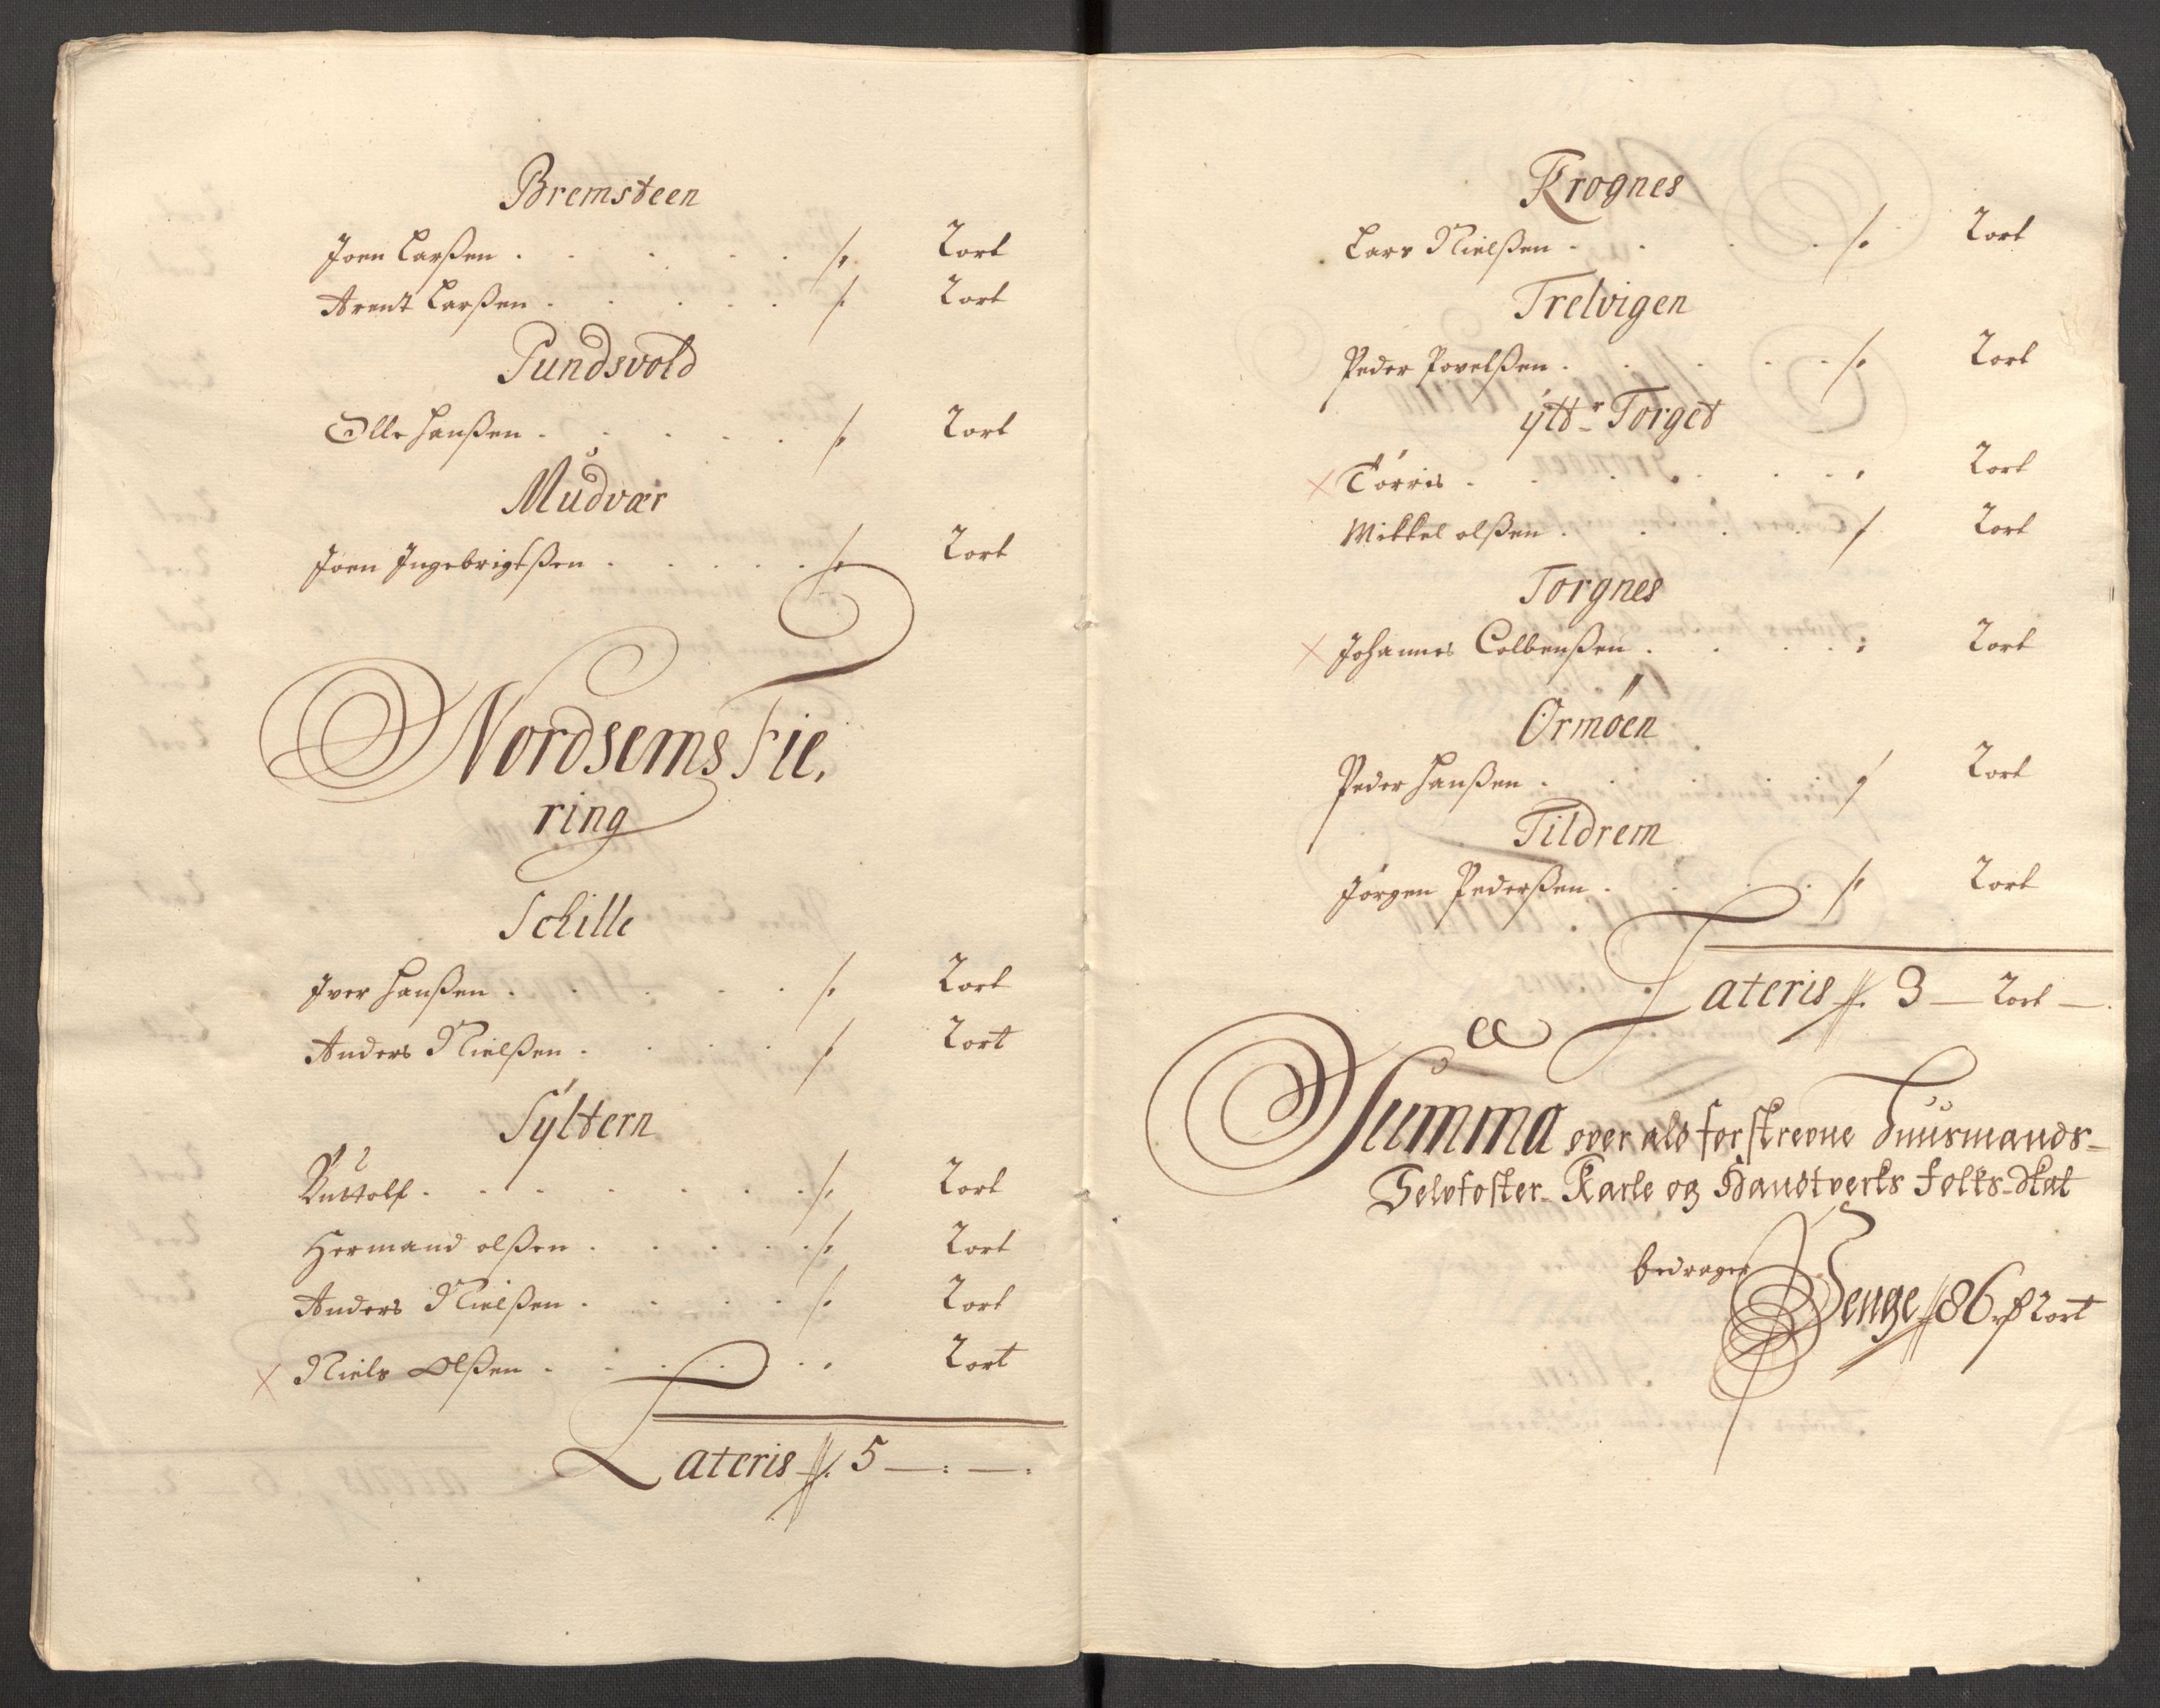 Bremsteen
Joen Larßen . . . . . /. 2 ort
Arent Larßen . . . . . /. 2 ort
Pundsvold
Olle Hanßen . . . . . /. 2 ort
Mudvær
Joen Ingebrigtßen . . . . . /. 2 ort
Nordsems Fie,
ring
Schille
Iver Hanßen . . . . . /. 2 ort
Anders Nielßen . . . . /. 2 ort
Syltern
Rottolf . . . . . . . /. 2 ort
Hermand olßen . . . . . /. 2 ort
Anders Nielßen . . . . . /. 2 ort
× Niels Olßen . . . . . . 2 ort
Lateris 5 — : — :
Krognes
Lars Nielßen . . . . /. 2 ort
Trelvigen
Peder Povelßen . . . . . /. 2 ort
ÿttr Torget
× Torris . . . . . . . 2 ort
Mikkel olßen . . . . / 2 ort
Torgnes
× Johannes Colbenßen . . . . : 2 ort
Ormøen
Peder Hanßen . . . . . / 2 ort
Tildrem
Jørgen Pederßen . . . . /. 2 ort
Lateris 3 — 2 ort —.
Summa over alt forskrevne Huusmands-
Selvfoster- Karle og Handtverks Folks-Skat
bedrager Penge 86 rd 2 ort